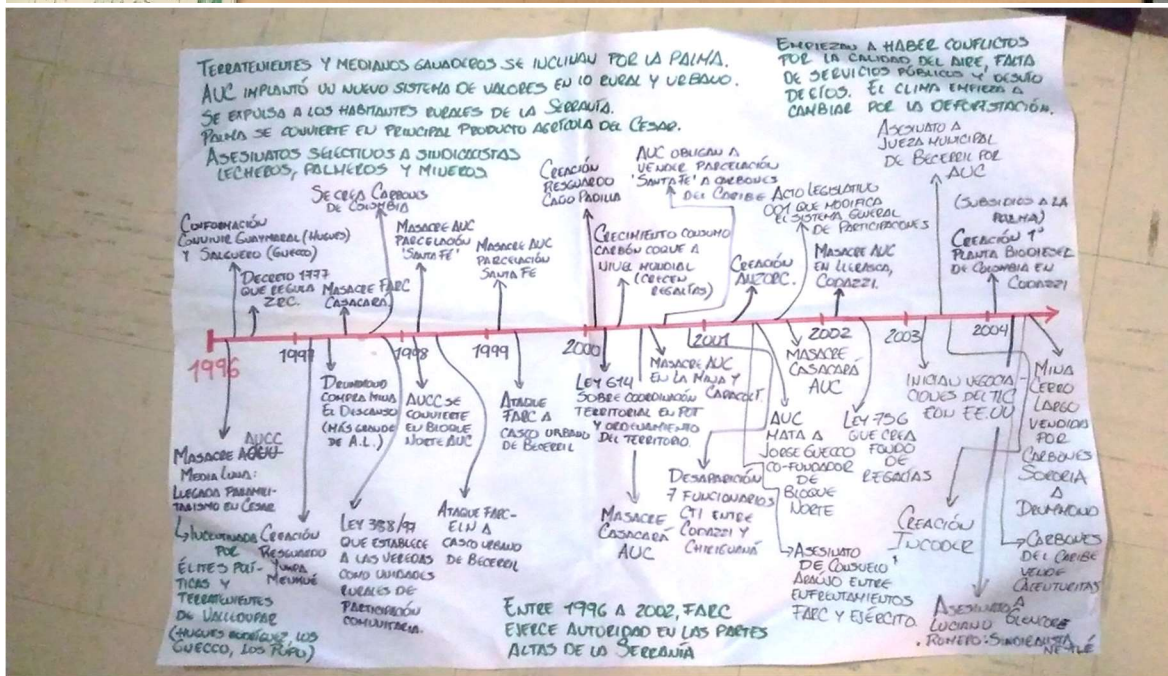 TERRATENIENTES Y MEDIANOS GANADEROS SE INCLINAN POR LA PALMA.
AUC IMPLANTÓ UN NUEVO SISTEMA DE VALORES EN LO RURAL Y URBANO.
SE EXPULSA A LOS HABITANTES RURALES DE LA SERRANÍA.
PALMA SE CONVIERTE EN PRINCIPAL PRODUCTO AGRÍCOLA DEL CESAR.
ASESINATOS SELECTIVOS A SINDICALISTAS
LECHEROS, PALMEROS Y MINEROS
EMPIEZAN A HABER CONFLICTOS
POR LA CALIDAD DEL AIRE, FALTA
DE SERVICIOS PÚBLICOS Y DESVÍO
DE RÍOS. EL CLIMA EMPIEZA A
CAMBIAR POR LA DEFORESTACIÓN.
CONFORMACIÓN
CONVIVIR GUAYMARAL (HUGUES)
Y SALGUERO (GUECCO)
DECRETO 1777
QUE REGULA
ZRC.
SE CREA CARBONES
DE COLOMBIA
MASACRE FARC
CASACARÁ
MASACRE AUC
PARCELACIÓN
'SANTA FE'
MASACRE AUC
PARCELACIÓN
SANTA FE
CREACIÓN
RESGUARDO
CAÑO PADILLA
CRECIMIENTO CONSUMO
CARBÓN COQUE A
NIVEL MUNDIAL
(CRECEN
REGALÍAS)
AUC OBLIGAN A
VENDER PARCELACIÓN
'SANTA FE' A CARBONES
DEL CARIBE
CREACIÓN
ANZORC.
ACTO LEGISLATIVO
001 QUE MODIFICA
EL SISTEMA GENERAL
DE PARTICIPACIONES
MASACRE AUC
EN LLERASCA,
CODAZZI.
ASESINATO A
JUEZA MUNICIPAL
DE BECERRIL POR
AUC
(SUBSIDIOS A LA
PALMA)
CREACIÓN 1ª
PLANTA BIODIESEL
DE COLOMBIA EN
CODAZZI
1996
1997
1998
1999
2000
2001
2002
2003
2004
MASACRE AUCC
MEDIA LUNA:
LLEGADA PARAMILI-
TARISMO EN CESAR
↳ INCENTIVADA
POR
ÉLITES POLÍ-
TICAS Y
TERRATENIENTES
DE VALLEDUPAR
(HUGUES RODRÍGUEZ, LOS
GUECCO, LOS PUPO)
CREACIÓN
RESGUARDO
MENKUÉ
DRUMMOND
COMPRA MINA
EL DESCANSO
(MÁS GRANDE
DE A.L.)
LEY 388/97
QUE ESTABLECE
A LAS VEREDAS
COMO UNIDADES
RURALES DE
PARTICIPACIÓN
COMUNITARIA.
AUCC SE
CONVIERTE
EN BLOQUE
NORTE AUC
ATAQUE FARC-
ELN A
CASCO URBANO
DE BECERRIL
ATAQUE
FARC A
CASCO URBANO
DE BECERRIL
LEY 614
SOBRE COORDINACIÓN
TERRITORIAL EN POT
Y ORDENAMIENTO
DEL TERRITORIO.
MASACRE
CASACARÁ
AUC
MASACRE AUC
EN LA
Y
DESAPARICIÓN
7 FUNCIONARIOS
CTI ENTRE
CODAZZI Y
CHIRIGUANÁ
AUC
MATA A
JORGE GUECCO
CO-FUNDADOR
DE
BLOQUE
NORTE
MASACRE
CASACARÁ
AUC
→ ASESINATO
DE CONSUELO
ARAUJO ENTRE
ENFRENTAMIENTOS
FARC Y EJÉRCITO
LEY 756
QUE CREA
FONDO
DE
REGALÍAS
INICIAN NEGOCIA
CIONES DEL TLC
CON EE.UU
CREACIÓN
INCODER
ASESINATO A
LUCIANO
ROMERO: SINDICALISTA
NESTLÉ
→ CARBONES
DEL CARIBE
VENDE
CALENTURITAS
A
GLENCORE
MINA
CERRO
LARGO
VENDIDA
POR
CARBONES
SORORIA
A
DRUMMOND
ENTRE 1996 A 2002, FARC
EJERCE AUTORIDAD EN LAS PARTES
ALTAS DE LA SERRANÍA